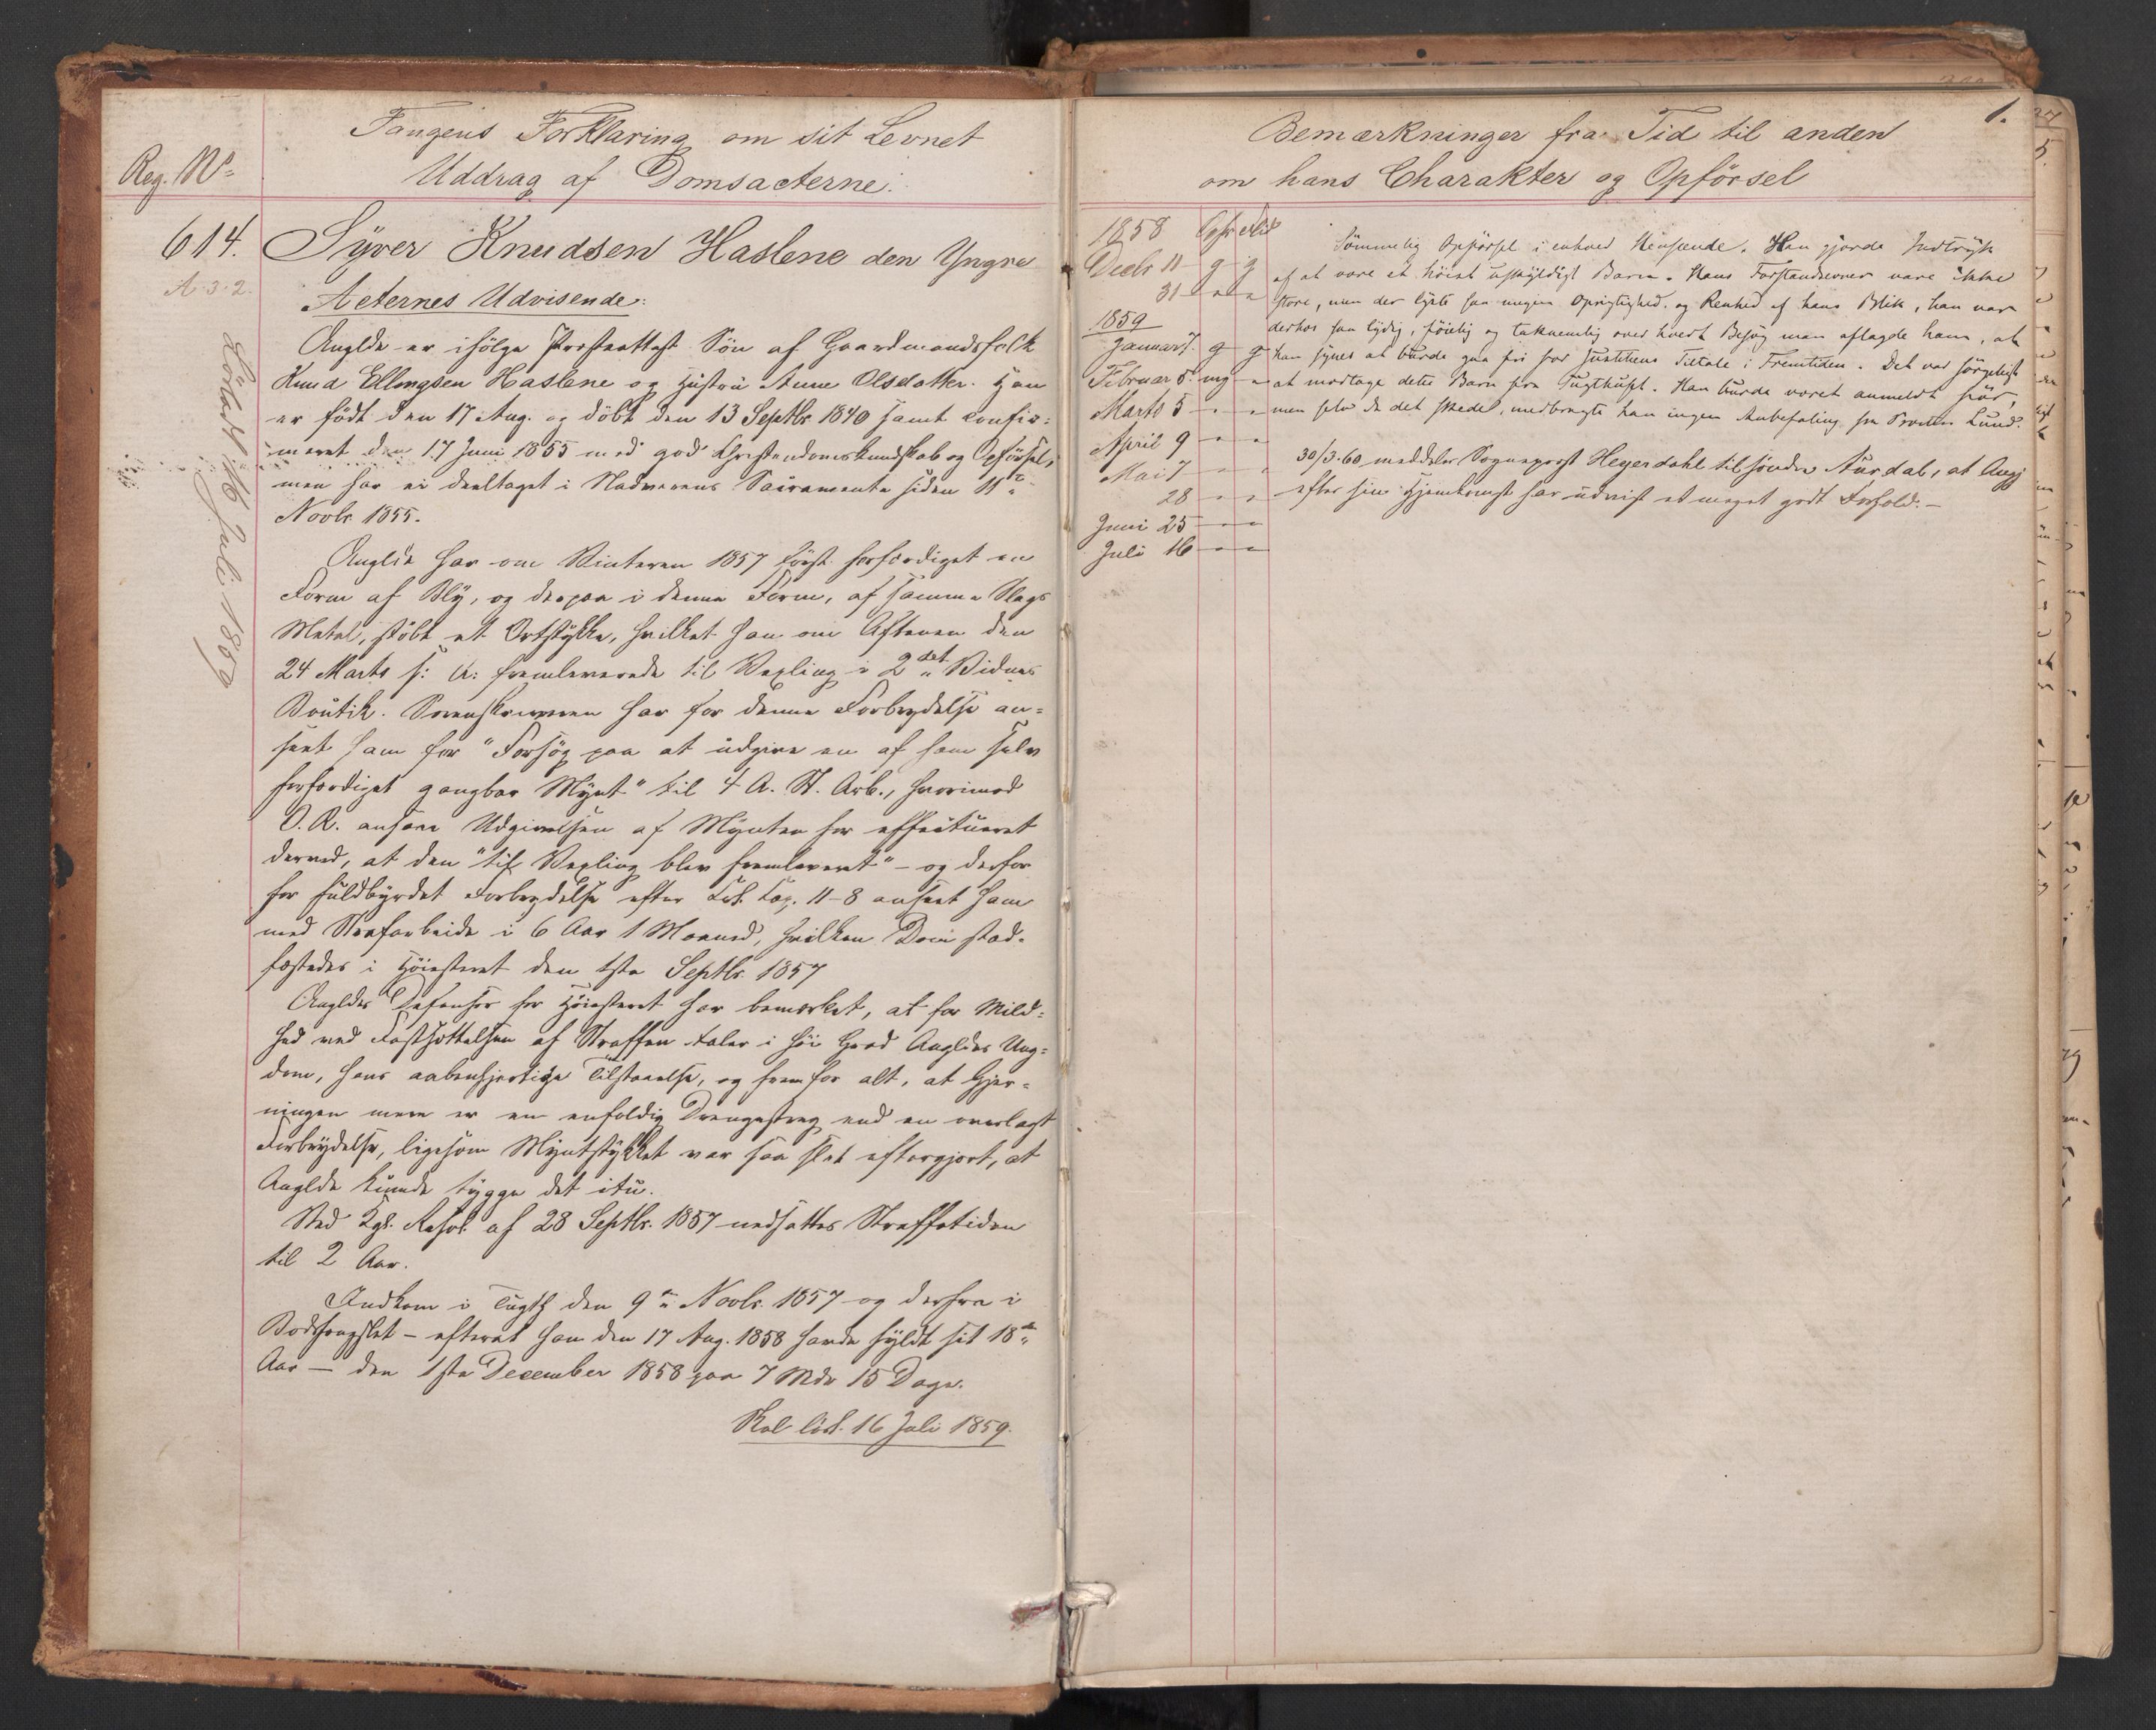 Fangens Forklaring om sit Levnet
Uddrag af Domsacterne.
Reg. No
614.
A. 3. 2.
Lösladt 16 Juli 1859
Syver Knudsen Haslene den Yngre
Acternes Udvisende:
Anglde er ifölge Præsteattest Sön af Gaardmandsfolk
Knud Ellingsen Haslene og Hustru Anne Olsdatter. Han
er födt den 17 Aug. og döbt den 13 Septbr. 1840 samt confir-
meret den 17 Juni 1855 med god Christendomskundskab og Opförsel,
men har ei deeltaget i Nadverens Sacramente siden 11te
Novbr. 1855.
Anglde har om Vinteren 1857 först forfærdiget en
Form af Bly, og derpaa i denne Form, af samme Slags
Metal, stöbt et Ortstykke, hvilket han om Aftenen den
24 Marts s: A: fremleverede til Vexling i 2det Vidnes
Boutik. Sorenskriveren har for denne Forbrydelse an-
seet ham for "Forsög paa at udgive en af ham selv
forfærdiget gangbar Mynt" til 4 A. St. Arb., hvorimod
O. R. ansaae Udgivelsen af Mynten for effectueret
derved, at den "til Vexling blev fremleveret" - og derfor
for fuldbyrdet Forbrydelse efter Crl. Cap. 11-8 anseet ham
med Strafarbeide i 6 Aar 1 Maaned, hvilken Dom stad-
fæstedes i Höiesteret den 1ste Septbr. 1857
Angldes Defensor for Höiesteret har bemærket, at for Mild-
hed ved Fastsættelsen af Straffen taler i höi Grad Angldes Ung-
dom, hans aabenhjertige Tilstaaelse, og fremfor alt, at Gjer-
ningen mere er en enfoldig Drengestreg end en overlagt
Forbrydelse, ligesom Myntstykket var saa slet eftergjort, at
Anglde kunde tygge det itu.
Ved Kgl. Resol. af 28 Septbr. 1857 nedsattes Straffetiden
til 2 Aar.
Indkom i Tugth. den 9de Novbr. 1857 og derfra i
Bodsfængslet - efterat han den 17 Aug. 1858 havde fyldt sit 18de
Aar - den 1ste December 1858 paa 7 Mdr 15 Dage.
Skal lösl. 16 Juli 1859.
1.
Bemærkninger fra Tid til anden
om hans Charakter og Opförsel
1858 Opfr Flid
Decbr 11 g g
31 " "
1859
Januar 7. g g
Februar 5. mg "
Marts 5 " "
April 9 " "
Mai 7 " "
28 " "
Juni 25 " "
Juli 16 " "
Sömmelig Opförsel i enhver Henseende. Han gjorde Indtryk
af at være et höist uskyldigt Barn. Hans Forstandsevner vare ikke
store, men der lyste saa megen Oprigtighed og Renhed af hans Blik, han var
derhos saa lydig, föielig og taknemlig over hvert Besög man aflagde ham, at
han synes at burde gaa fri for Justitiens Tiltale i Fremtiden. Det var sörgeligt
at modtage dette Barn fra Tugthuset. Han burde været anmeldt för,
men selv da det skede, medbragte han ingen Anbefaling fra Præsten Lund.
30/3.60 meddeler Sogneprest Heyerdahl til söndre Aurdal, at Angj
efter sin Hjemkomst har udvist et meget godt Forhold. -